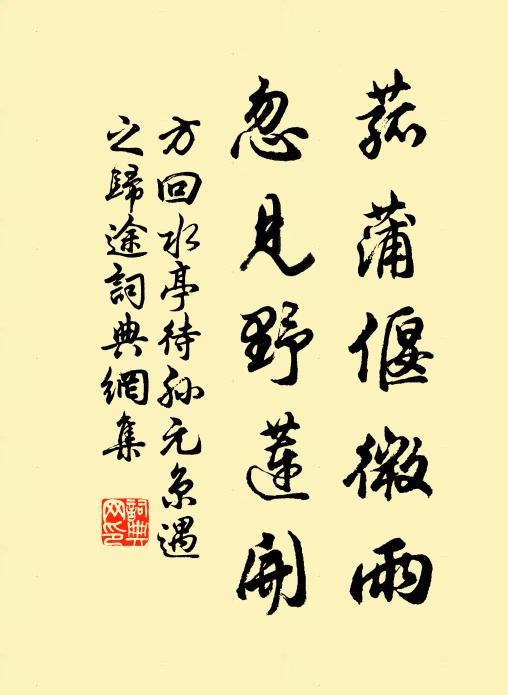 菰蒲偃微雨
忽見野蓮開
方回水亭待孙元京遇
之歸途詞典網集
詞典网印